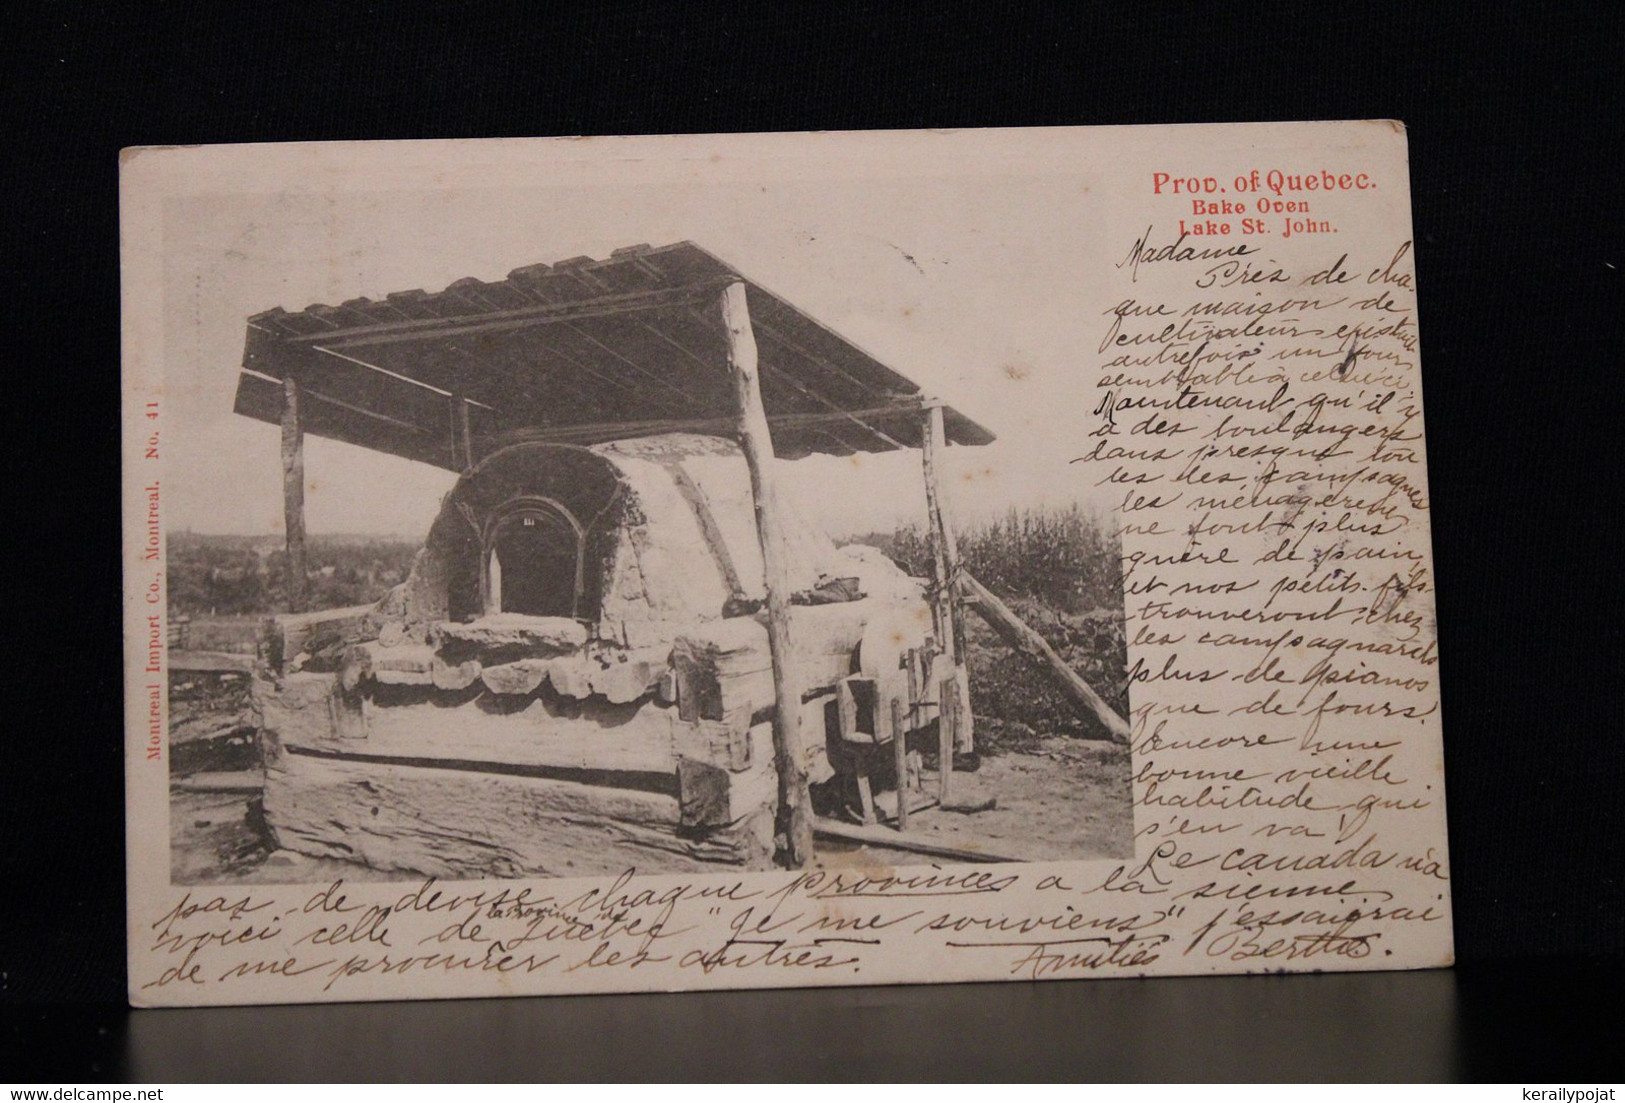 Prov. of Quebec.
Bake Oven
Lake St. John.
Montreal Import Co., Montreal. No. 41
Madame
Près de cha-
que maison de
cultivateurs existait
autrefois un four
semblable à celui-ci
Maintenant qu'il y
a des boulangers
dans presque tou
tes les campagnes
les ménagères
ne font plus
guère de pain,
et nos petits-fils
trouveront chez
les campagnards
plus de pianos
que de fours.
Encore une
bonne vieille
habitude qui
s'en va!
Le Canada n'a
pas de devise, chaque provinces a la sienne
voici celle de la Province de Québec "Je me souviens" j'essaierai
de me procurer les autres. Amitiés Berthe.
kerailypojat © delcampe.net